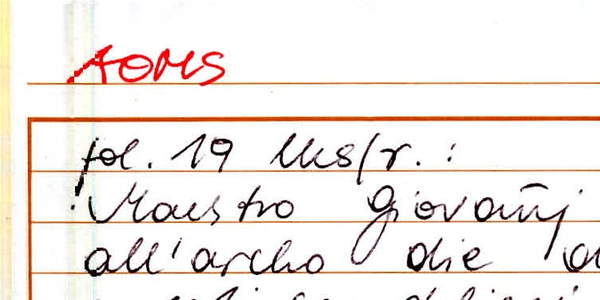 AOMS
fol. 19 lks/r. :
Maestro Giovañj
all'archo die